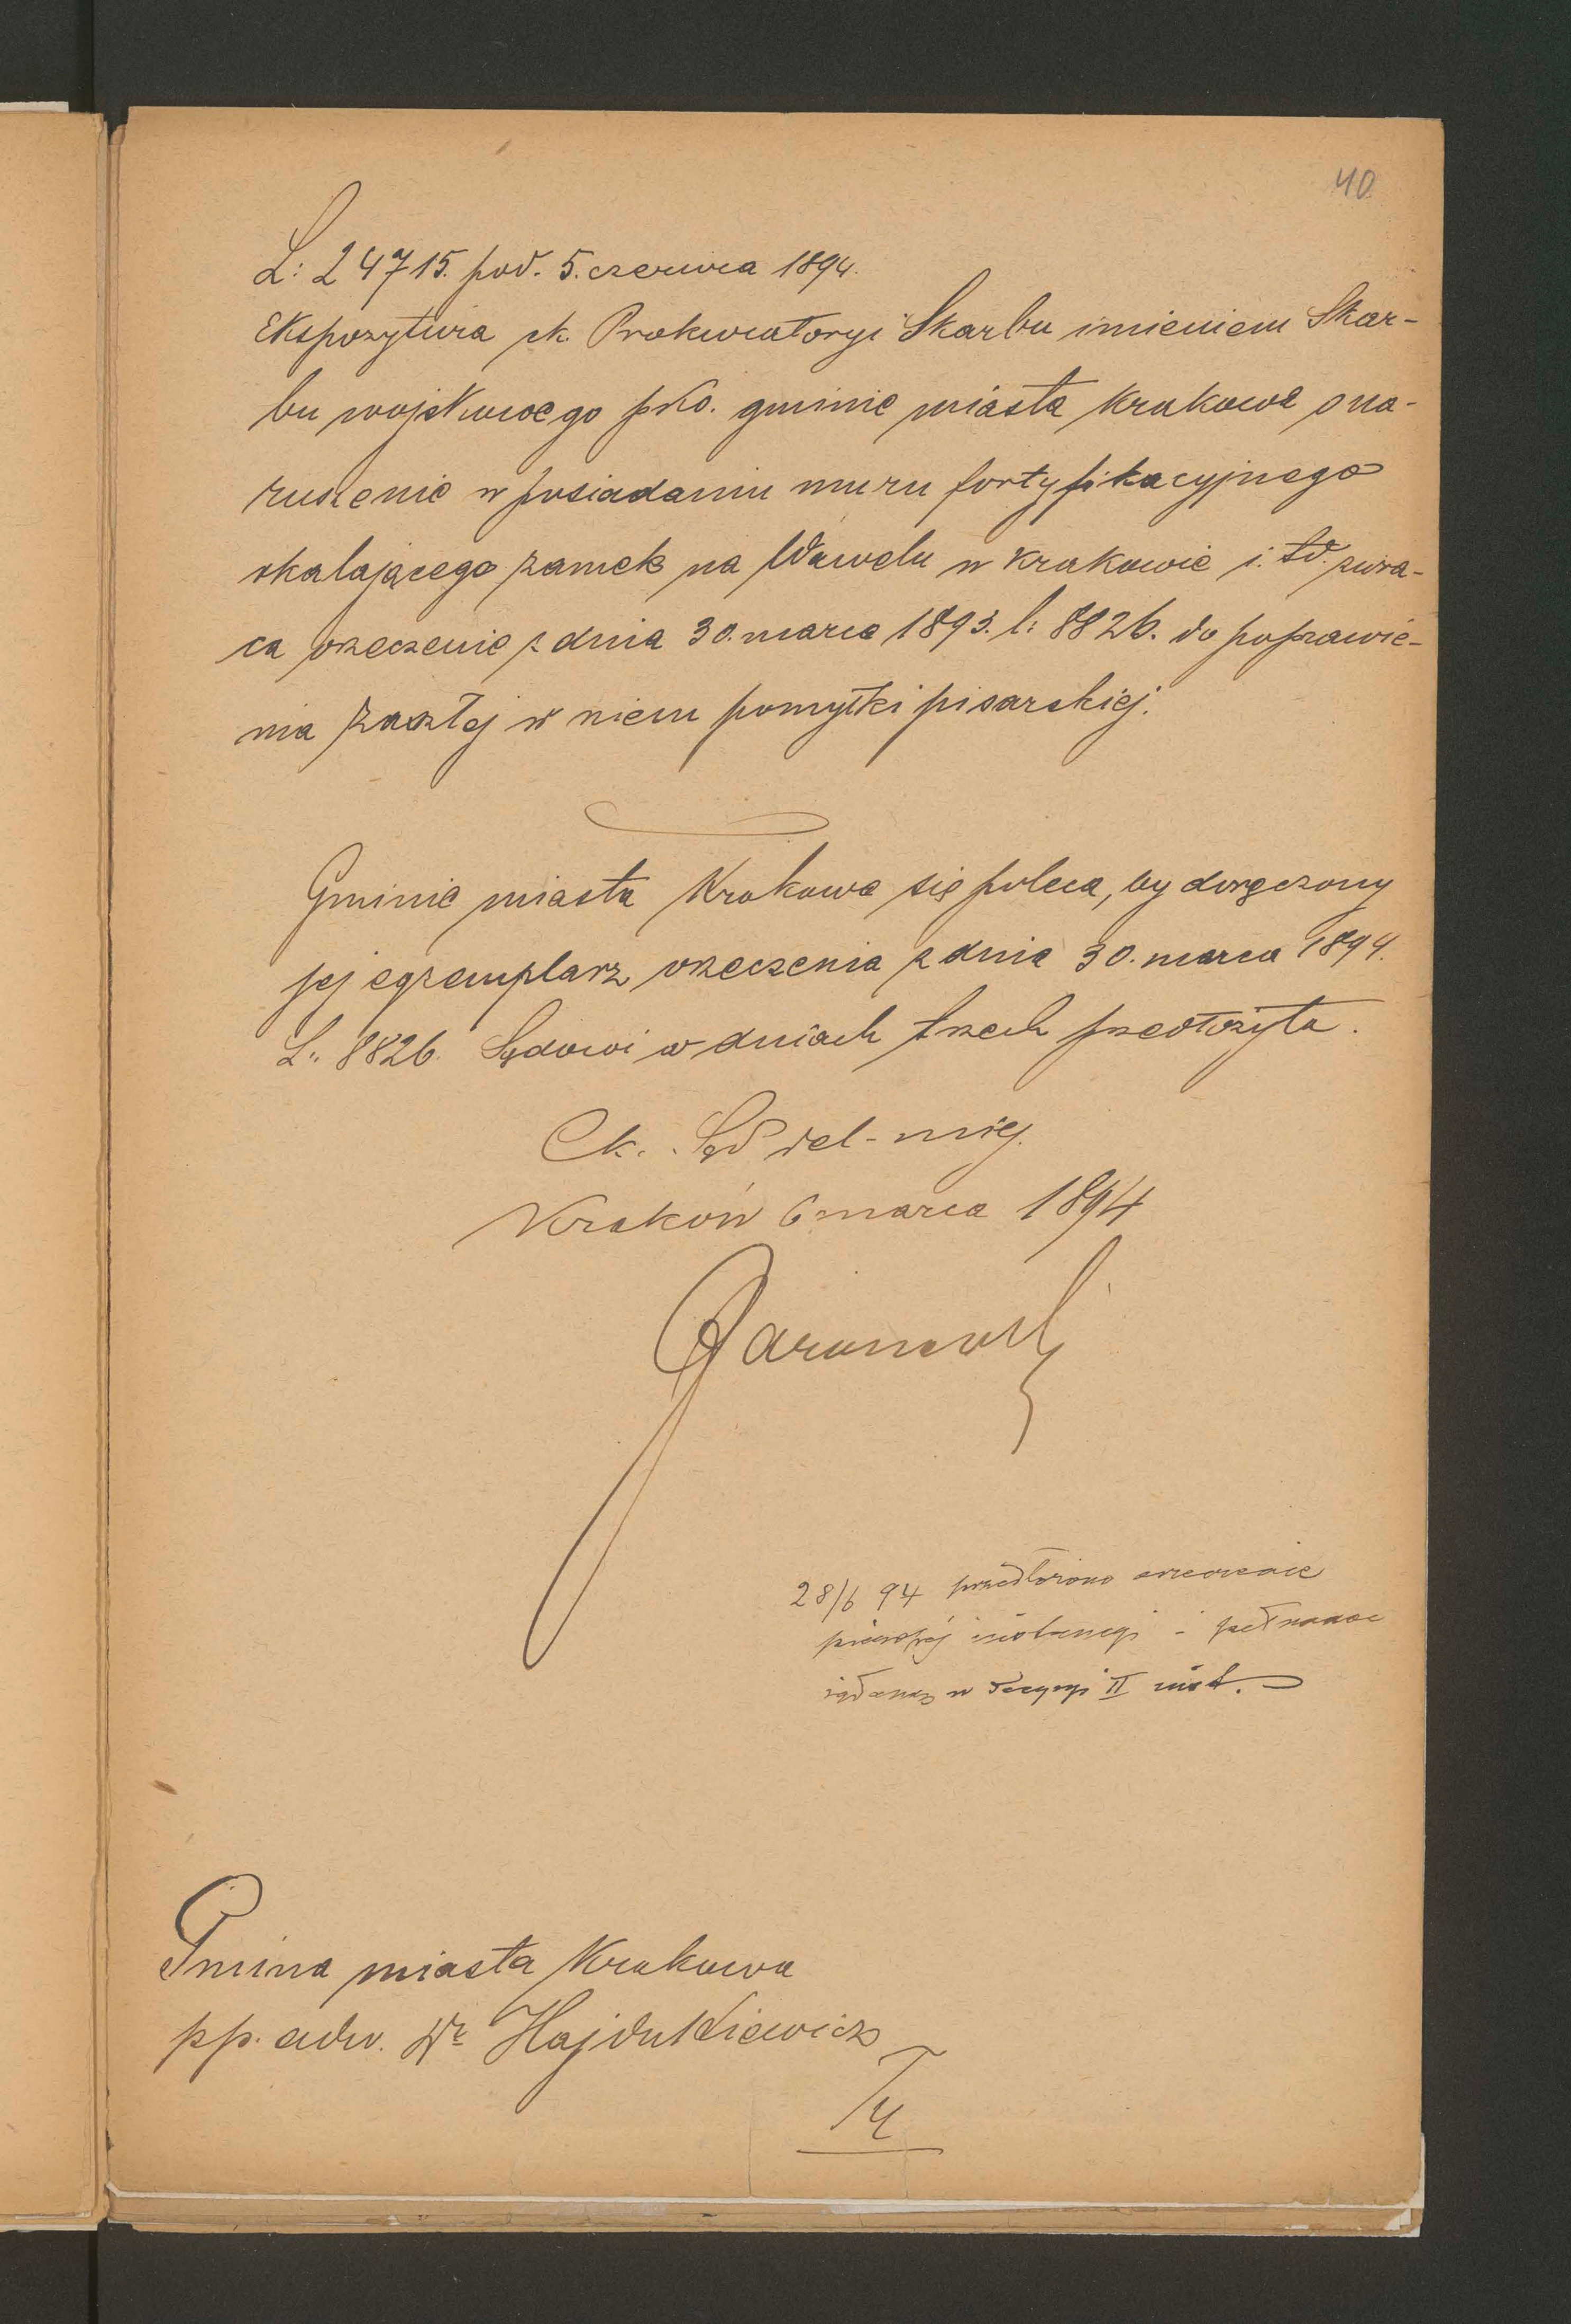 40
L: 24715. pod. 5. czerwca 1894.
Ekspozytura ck. Prokuratoryi Skarbu imieniem Skar-
bu wojskowego pko. gminie miasta Krakowa o na-
ruszenie w posiadaniu muru fortyfikacyjnego
okalającego zamek na Wawelu w Krakowie i. td. zwra-
ca orzeczenie z dnia 30. marca 1893. l: 8826. do poprawie-
nia zaszłej w niem pomyłki pisarskiej.
Gminie miasta Krakowa się poleca, by doręczony
jej egzemplarz orzeczenia z dnia 30. marca 1894.
L: 8826. Sądowi w dniach trzech przedłożyła.
Ck. Sąd del-miej.
Kraków 6 marca 1894
28/6 94 przedłożono orzeczenie
pierwszej instancyi i
w decyzyi II inst.
Gmina miasta Krakowa
pp. adw. Dr Hajdukiewicz